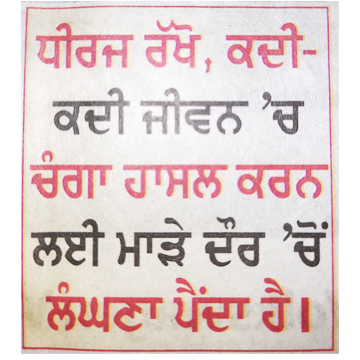 ਧੀਰਜ ਰੱਖੋ, ਕਦੀ-
ਕਦੀ ਜੀਵਨ ’ਚ
ਚੰਗਾ ਹਾਸਲ ਕਰਨ
ਲਈ ਮਾੜੇ ਦੌਰ ’ਚੋਂ
ਲੰਘਣਾ ਪੈਂਦਾ ਹੈ।